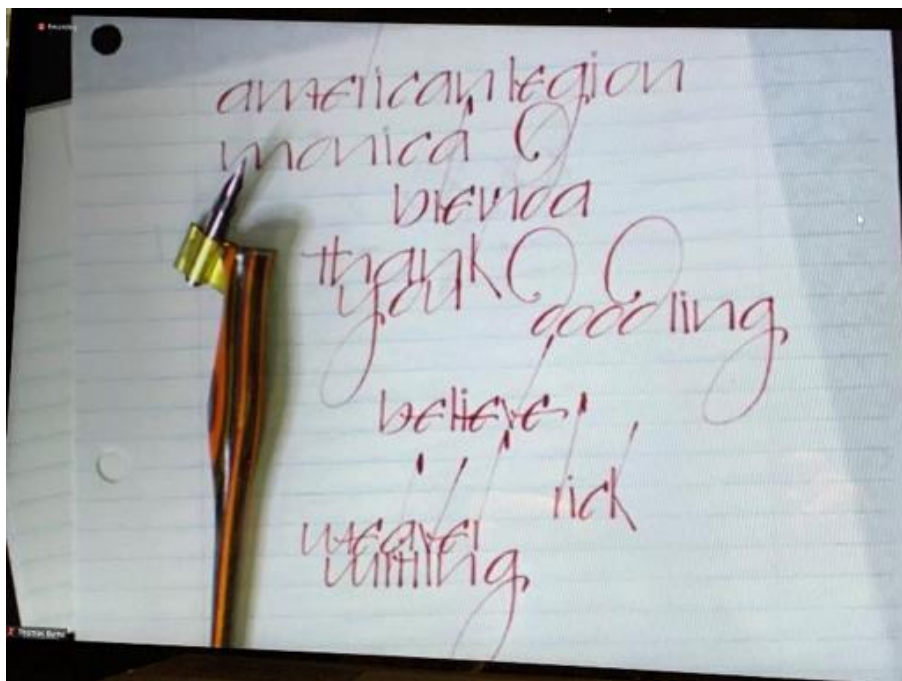 Recording
american legion
monica
brenda
thank
you
doodling
believe
rick
weaver
writing